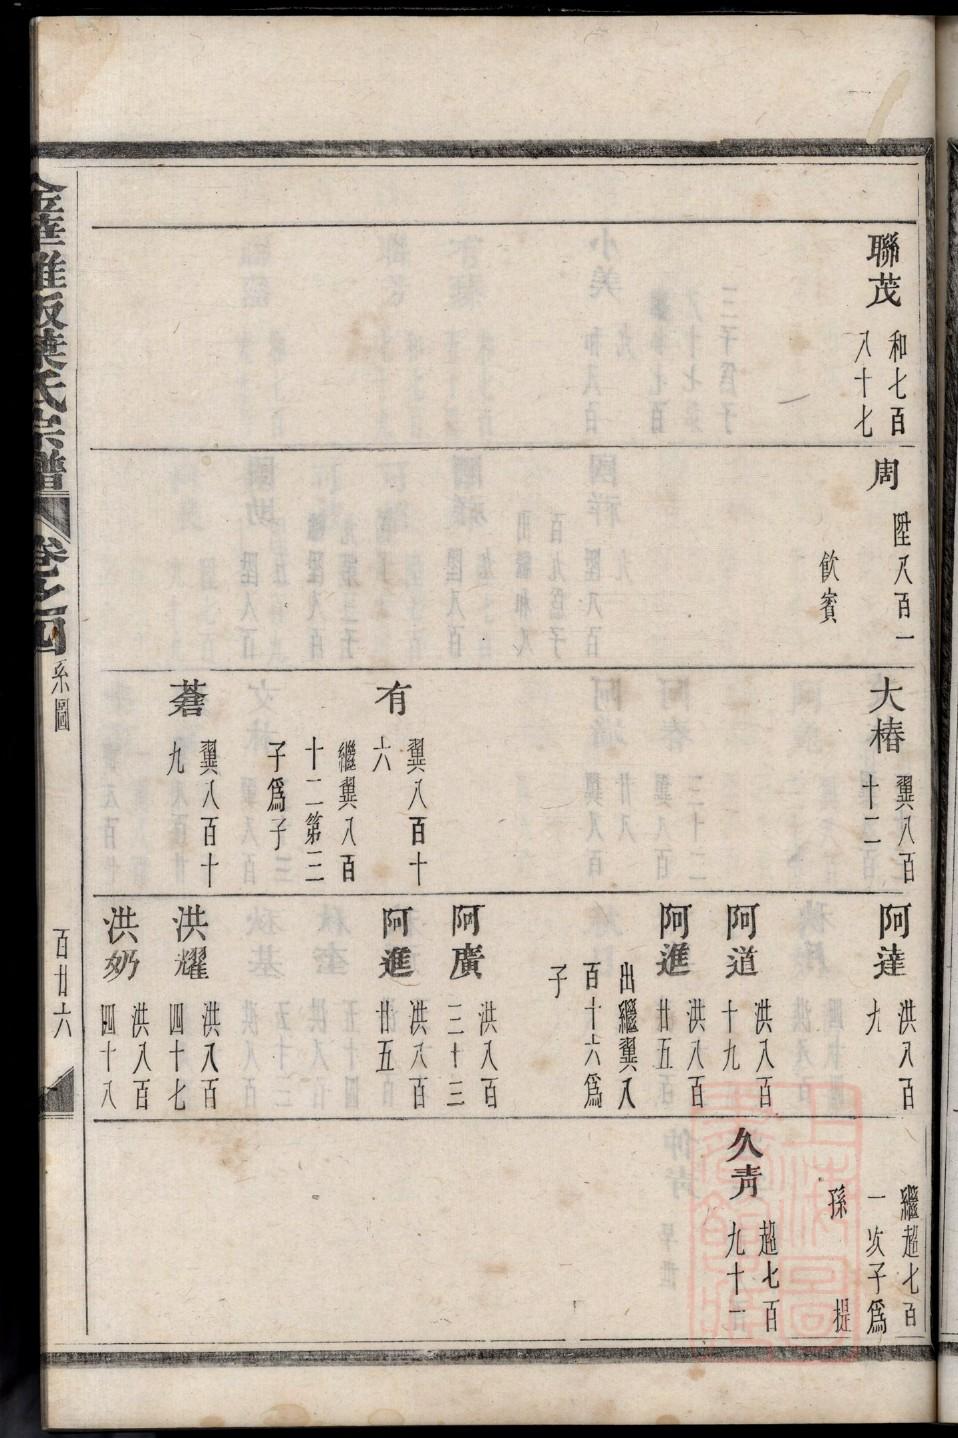 聯茂
和七百
八十七
周
陞八百一
飲賓
大椿
翼八百
十二
有
翼八百十
六
繼翼八百
十二第三
子爲子
蒼
翼八百十
九
阿達
洪八百
九
阿道
洪八百
十九
阿進
洪八百
廿五
出繼翼八
百十六爲
子
阿廣
洪八百
三十三
阿進
洪八百
廿五
洪耀
洪八百
四十七
洪妳
洪八百
四十八
繼超七百
一次子爲
孫 提
久青
超七百
九十一
金華雅畈葉氏宗譜 卷之四 系圖 百廿六